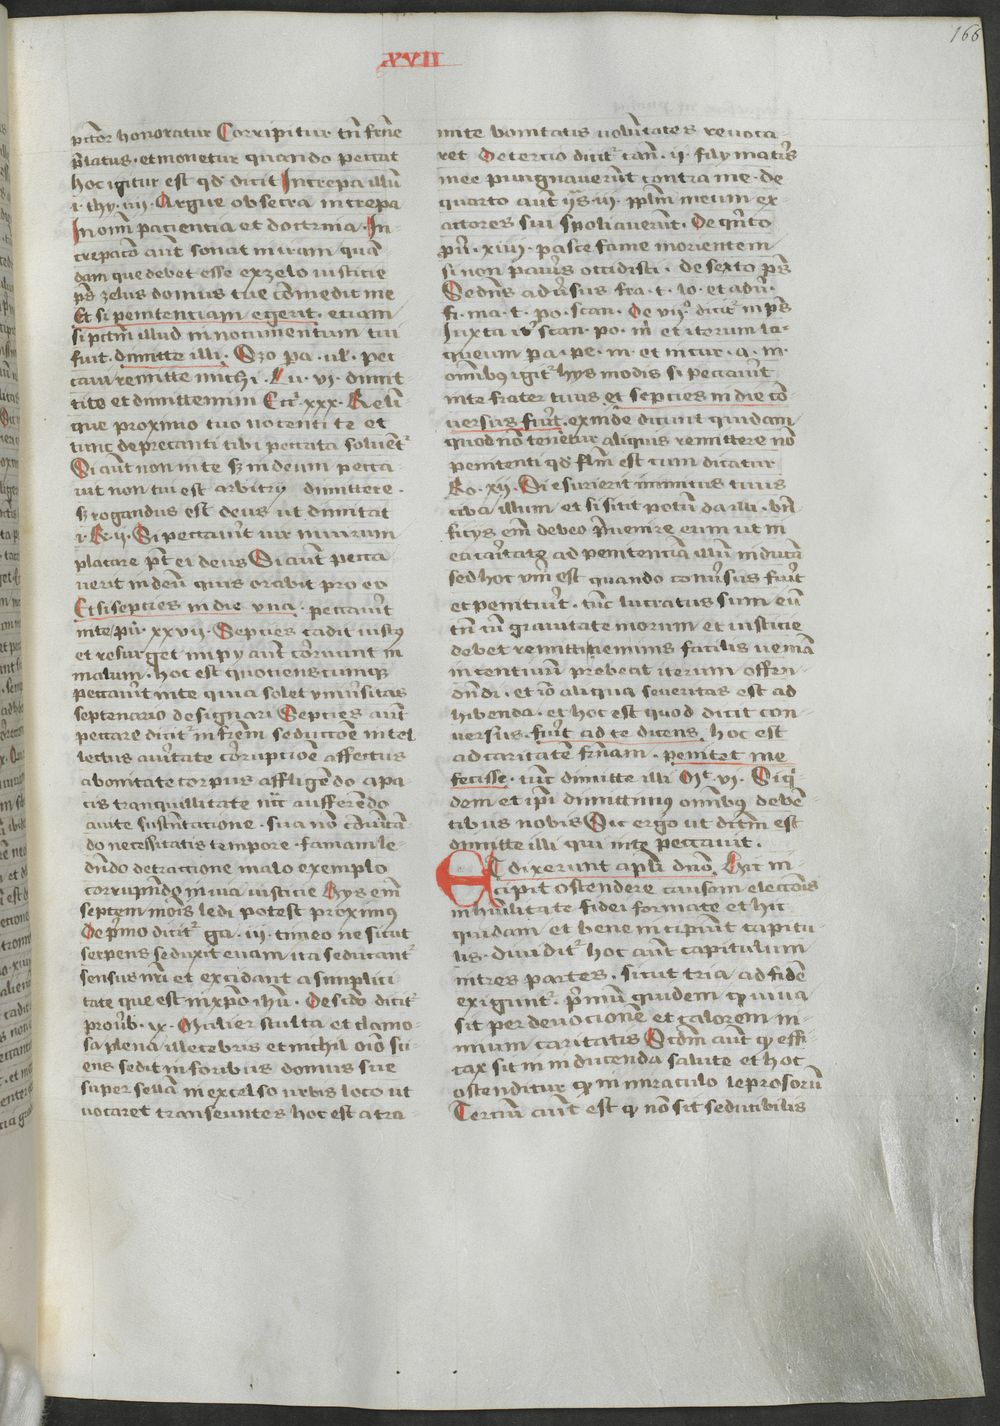 166
XVII
pctor honoratur Corripitur tn̄ frn̄e
p̄latus · et monetur quando peccat
hoc igitur est qd̓ dicit Increpa illū
i · thy · iiii · Argue obsecra increpa
In om̄i paciencia et doctrina · In-
crepacō aūt sonat miram quā
dam que debet esse ex zelo iusticie
ps̄ zelus domus tue cōmedit me
Et si penitenciam egerit · etiam
si pctm̄ illud in nocumentum tui
fuit · dimitte illi ·
cavi remitte michi · Lu · vi · dimit
tite et dimittemini Eccͥ xxx · Relin̄
que proximo tuo nocenti te et
tunc deprecanti tibi peccata solvent᷑
Si aūt non in te sꝫ in deum pecca
vit non tui est arbitrij dimittere ·
sꝫ rogandus est deus ut dimittat
i · R · ii · Si peccaverit vir in virum
placare pt̄ ei deus Si aūt pecca
verit in deū quis orabit pro eo
Et si sepcies in die una · peccav̄it
in te pū · xxvii · Sepcies cadit iustꝰ
et resurget impij aūt corruunt in
malum · hoc est quocienscumqꝫ
peccav̄it in te quia solet univ̄sitas
septenario designari Sepcies aūt
peccare dicit᷑ in frēm seductōe intel
lectus av̄itate corrupcōe affectus
a bonitate corpus affligēdo a pa
cis tranquillitate
aiute sustentacione · sua nō
do necessitatis tempore · famam le
dēdo detractione malo exemplo
corrumpēdo in via iusticie Hys em̄
septem modis ledi potest proximus
De p̄mo dicit᷑ ga · iii · timeo ne sicut
serpens seduxit evam ita seducant᷑
sensus vr̄i et excidant a simplici
tate que est in xp̄o ihū · De sc̄do dicit᷑
prov̄b · ix · Mulier stulta et clamo-
sa plena illecebris et nichil oīo sci
ens sedit in foribus domus sue
super sellā in excelso urbis loco ut
vocaret transeuntes hoc est a tra
mite bonitatis volūtates revoca-
ret De tercio dicit᷑ can̄ · ii · filij matris
mee pungnaverūt contra me · de
quarto aūt ys · iii · pplm̄ meum ex-
actores sui spoliaverūt · De qn̄to
pū · xiiii · pasce fame morientem
si non pav̄is occidisti · de sexto ps̄
Sedens adv̄sus fra · t · lo · et adv̄ ·
fi · ma · t · po · scan · De viiͦ dicit᷑ in ps̄
Iuxta it̄ scan · po · m̄ et iterum la-
queum pa · pe · m · et incur · a · m ·
om̄ibꝰ igit᷑ hys modis si peccav̄it
in te frater tuus et sepcies in die cō
versus fūit · ex inde dicunt quidam
quod nō tenetur aliquis remittere nō
penitenti qd̓ flm̄ est cum dicatur
Ro · xij · Si esurierit inimicus tuus
ciba illum et si sitit potū da illi ·
ficijs em̄ debeo p̄venire eum ut in
eta caritate ad penitenciā illū inducā
sed hoc verū est quando conv̄sus fūit
et penituit · tūc lucratus sum eū
tn̄ cū gravitate morum et iusticie
debet remitti ne nimis facilis veniā
incentivū prebeat iterum offen
dēdi · et iō aliqua severitas est ad
hibenda · et hoc est quod dicit con
versus · fūit ad te dicens hoc est
ad caritatem frn̄am · penitet me
fecisse · tūc dimitte illi Mt · vi · Siqͥ
dem et ipī dimittimꝰ om̄ibꝰ debē
tibus nobis Sic ergo ut dictm̄ est
dimitte illi qui in te peccavit ·
Et dixerunt apl̄i dn̄o Hic in-
cipit ostendere causam electōis
in humilitate fidei formate et hic
quidam et bene incipiūt capitu
lis · dividit᷑ hoc aūt capitulum
in tres partes · sicut tria ad fidē
exigunt᷑ · p̄mū quidem qꝫ viva
sit per devocionē et calorem in
nium caritatis Scdm̄ aūt qꝫ effi-
cax sit in inducenda salute et hoc
ostenditur qꝫ in miraculo leprosorū
Terciū aūt est qꝫ nō sit seducibilis